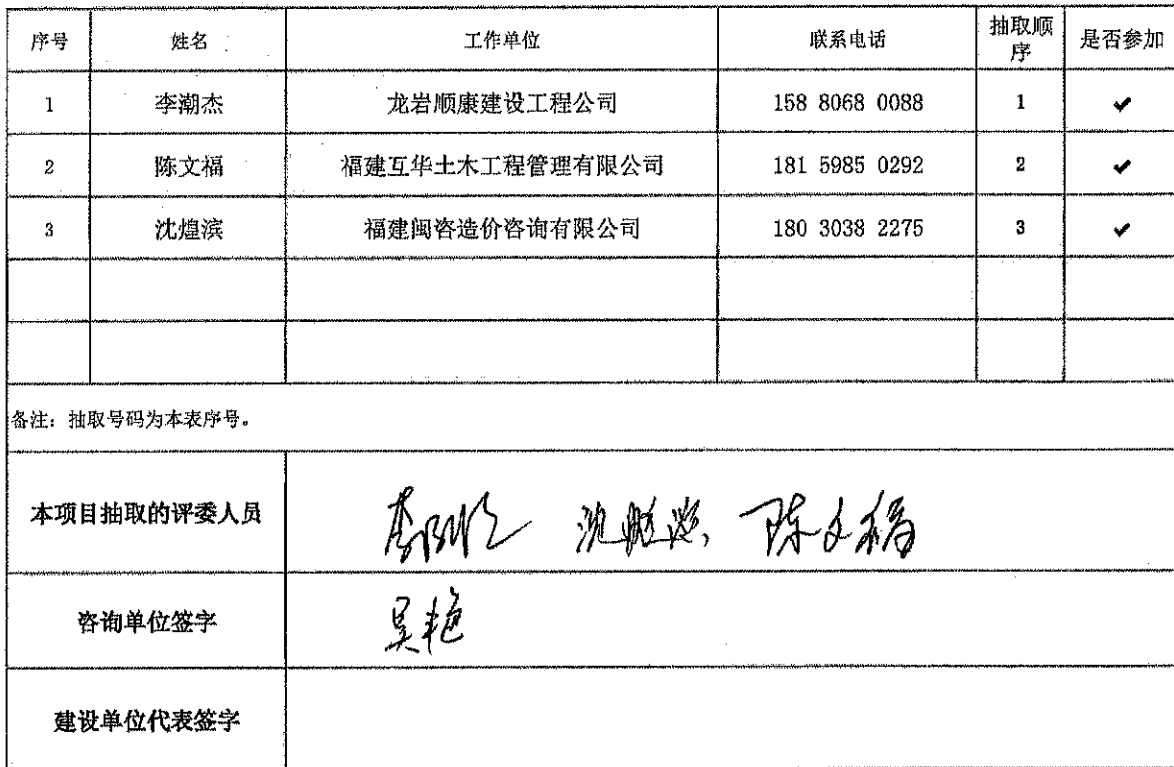 序号 姓名 工作单位 联系电话 抽取顺序 是否参加
1 李潮杰 龙岩顺康建设工程公司 158 8068 0088 1 ✔
2 陈文福 福建互华土木工程管理有限公司 181 5985 0292 2 ✔
3 沈煌滨 福建闽咨造价咨询有限公司 180 3038 2275 3 ✔
备注：抽取号码为本表序号。
本项目抽取的评委人员 陈文福
咨询单位签字 吴艳
建设单位代表签字